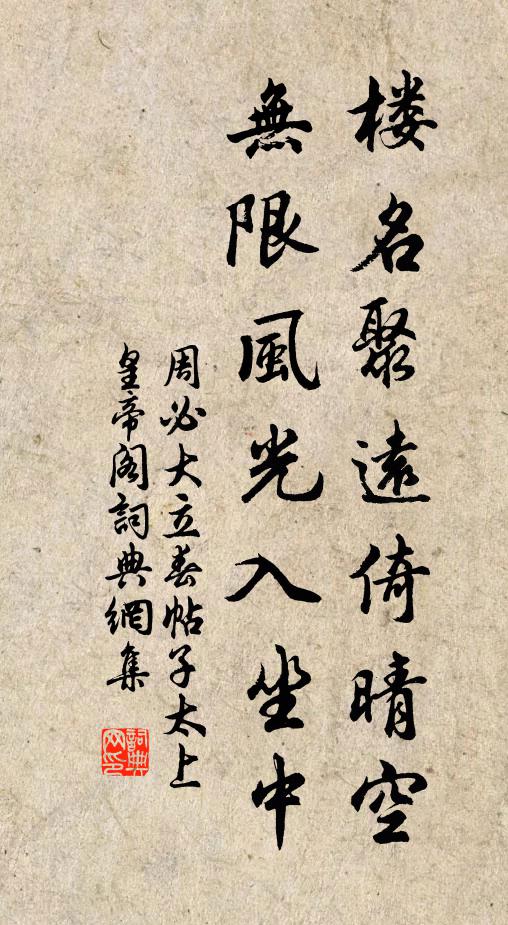 楼名聚遠倚晴空
無限風光入坐中
周必大立春帖子太上
皇帝阁詞典網集
詞典网印